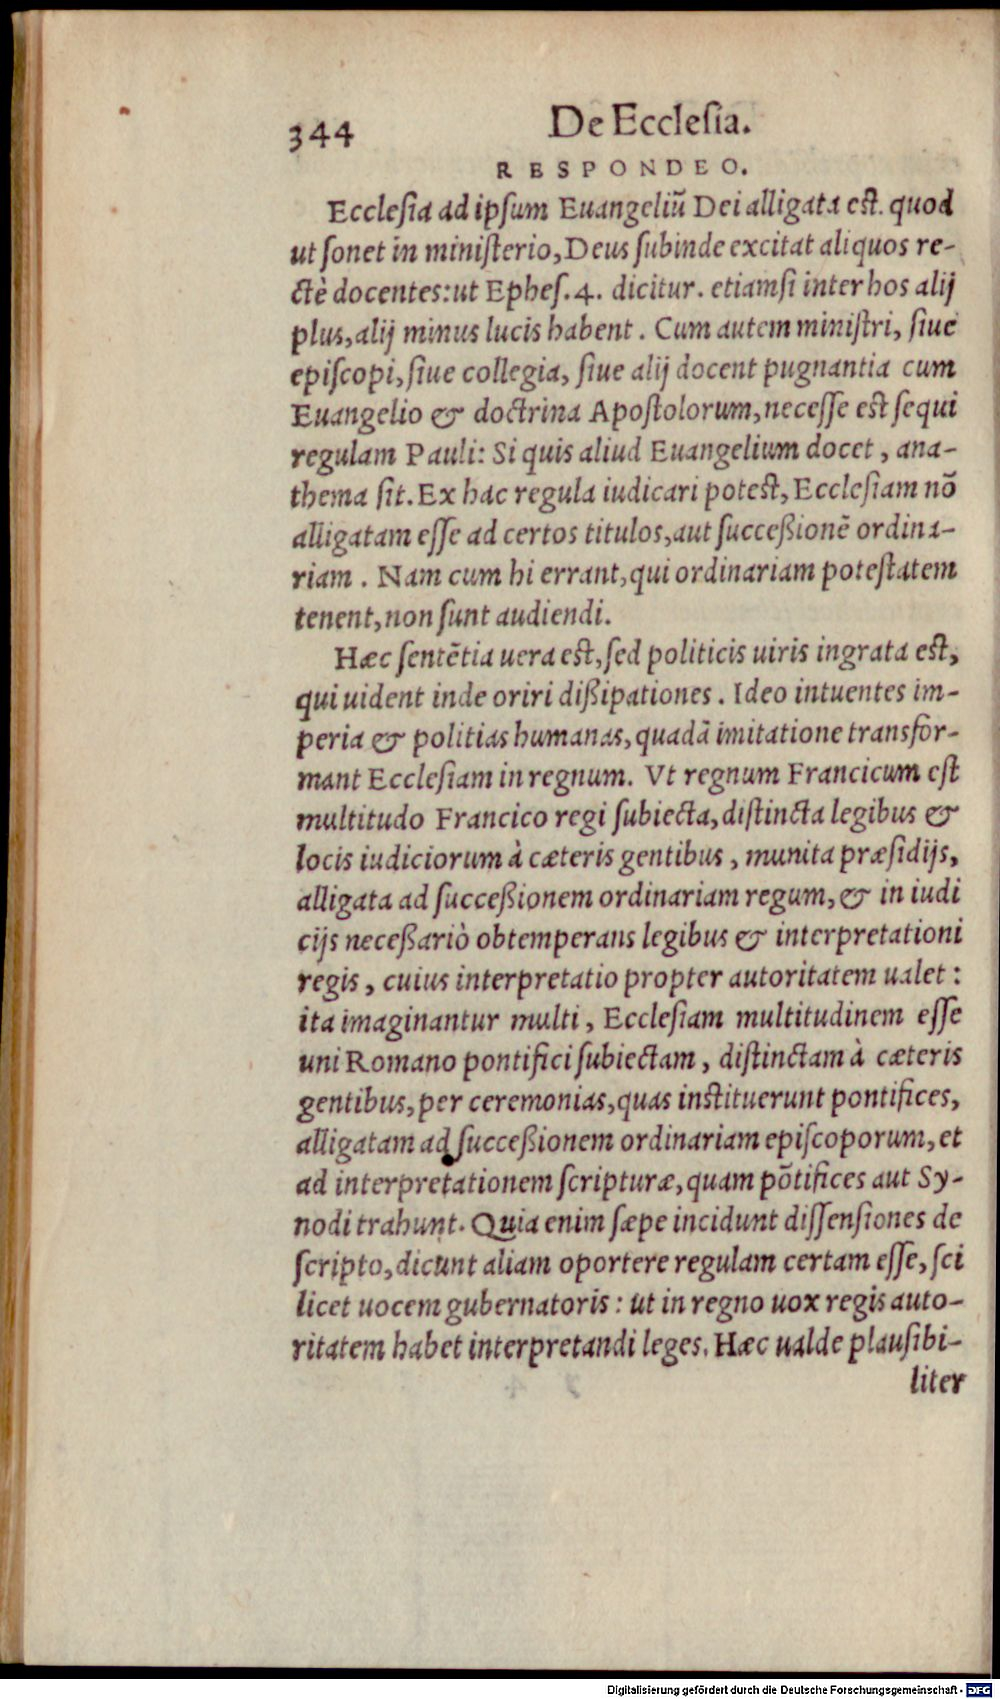 344 De Ecclesia.
RESPONDEO.
Ecclesia ad ipsum Euangeliū Dei alligata est. quod
ut sonet in ministerio, Deus subinde excitat aliquos re-
ctè docentes: ut Ephes. 4. dicitur. etiamsi inter hos alij
plus, alij minus lucis habent. Cum autem ministri, siue
episcopi, siue collegia, siue alij docent pugnantia cum
Euangelio & doctrina Apostolorum, necesse est sequi
regulam Pauli: Si quis aliud Euangelium docet, ana-
thema sit. Ex hac regula iudicari potest, Ecclesiam nō
alligatam esse ad certos titulos, aut succeßionē ordina-
riam. Nam cum hi errant, qui ordinariam potestatem
tenent, non sunt audiendi.
Hæc sentētia uera est, sed politicis uiris ingrata est,
qui uident inde oriri dißipationes. Ideo intuentes im-
peria & politias humanas, quadā imitatione transfor-
mant Ecclesiam in regnum. Vt regnum Francicum est
multitudo Francico regi subiecta, distincta legibus &
locis iudiciorum à cæteris gentibus, munita præsidijs,
alligata ad succeßionem ordinariam regum, & in iudi
cijs neceßariò obtemperans legibus & interpretationi
regis, cuius interpretatio propter autoritatem ualet:
ita imaginantur multi, Ecclesiam multitudinem esse
uni Romano pontifici subiectam, distinctam à cæteris
gentibus, per ceremonias, quas instituerunt pontifices,
alligatam ad succeßionem ordinariam episcoporum, et
ad interpretationem scripturæ, quam pōtifices aut Sy-
nodi trahunt. Quia enim sæpe incidunt dissensiones de
scripto, dicunt aliam oportere regulam certam esse, sci
licet uocem gubernatoris: ut in regno uox regis auto-
ritatem habet interpretandi leges. Hæc ualde plausibi-
liter
Digitalisierung gefördert durch die Deutsche Forschungsgemeinschaft - DFG